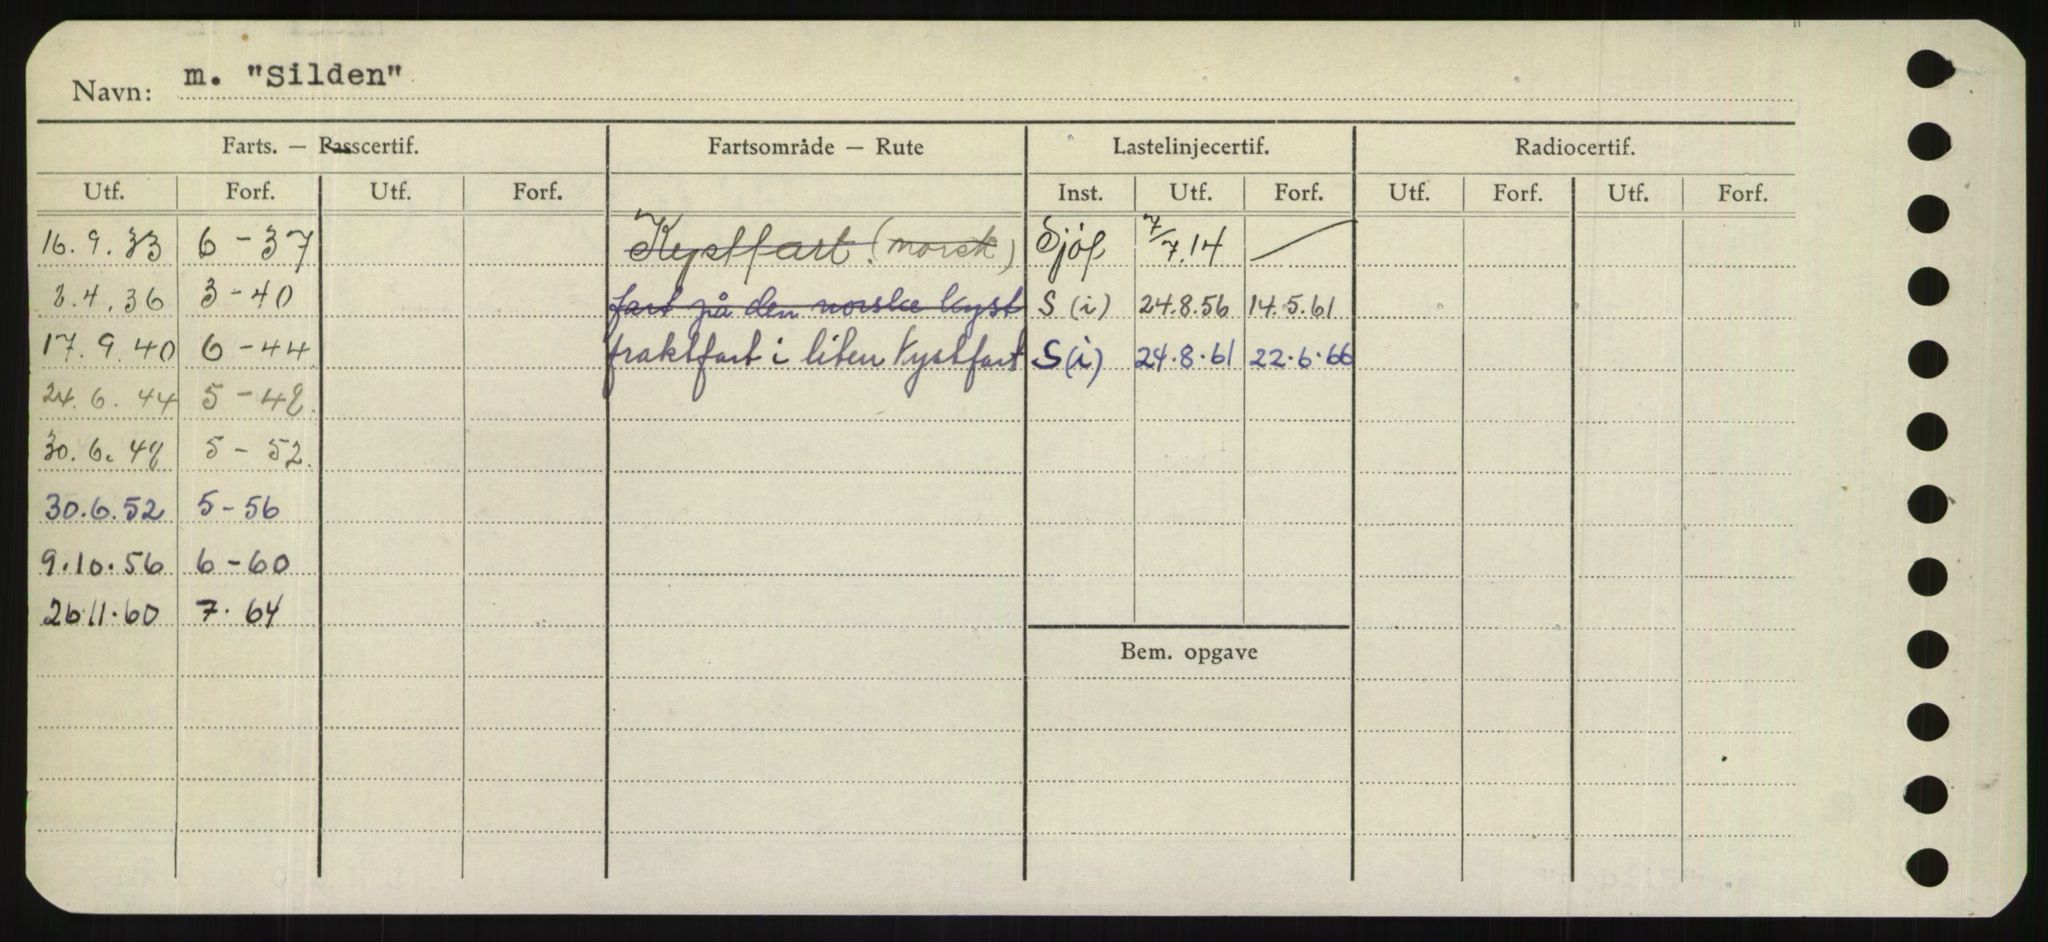 Navn: m. "Silden"
Farts. — Passcertif. Fartsområde — Rute Lastelinjecertif. Radiocertif.
Utf. Forf. Utf. Forf. Inst. Utf. Forf. Utf. Forf. Utf. Forf.
16. 9. 33 6 - 37 Kystfart. (norsk) Sjöf 7/7.14 —
2.4.36 3-40 fart på den norske kyst S (i) 24.8.56 14.5.61
17. 9. 40 6-44 fraktfart i liten kystfart S (i) 24.8.61 22.6.66
24. 6. 44 5 - 48.
30. 6. 48 5 - 52.
30.6.52 5-56
9.10.56 6-60
26.11.60 7. 64
Bem. opgave